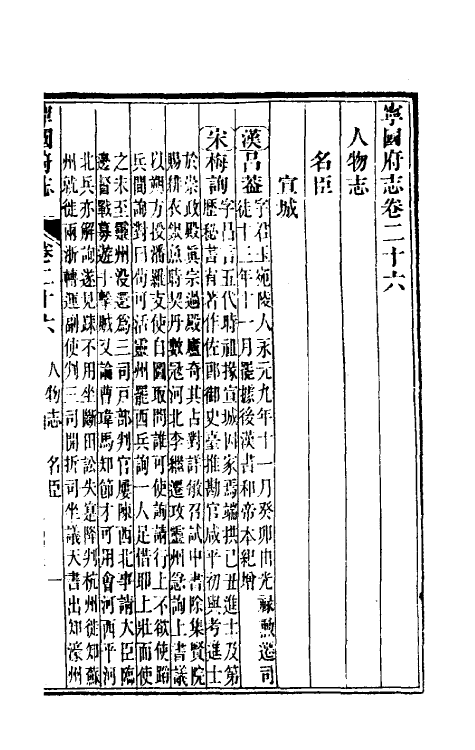 寧國府志卷二十六
人物志
名臣
宣城
漢呂蓋字君玉宛陵人永元九年十一月癸卯由光祿勳遷司
徒十三年十一月罷據後漢書和帝本紀增
宋梅詢字昌言五代時祖掾宣城因家焉端拱己丑進士及第
歷秘書省著作佐郎御史臺推勘官咸平初與考進士
於崇政殿真宗過殿廬奇其占對詳敏召試中書除集賢院
賜緋衣銀魚時契丹數寇河北李繼遷攻靈州急詢上書議
以朔方授潘羅支使自圖取問誰可使詢請行上不欲使蹈
兵間詢對曰苟可活靈州罷西兵詢一人足惜耶上壯而使
之未至靈州没還為三司戶部判官屢陳西北事請大臣臨
邊督戰募遊士擊賊又論曹瑋馬知節才可用會河西平河
北兵亦解詢遂見踈不用坐斷田訟失寔降判杭州徙知蘇
州就徙兩浙轉運副使判三司開拆司坐議天書出知濠州
寧國府志
卷二十六
人物志
名臣
一